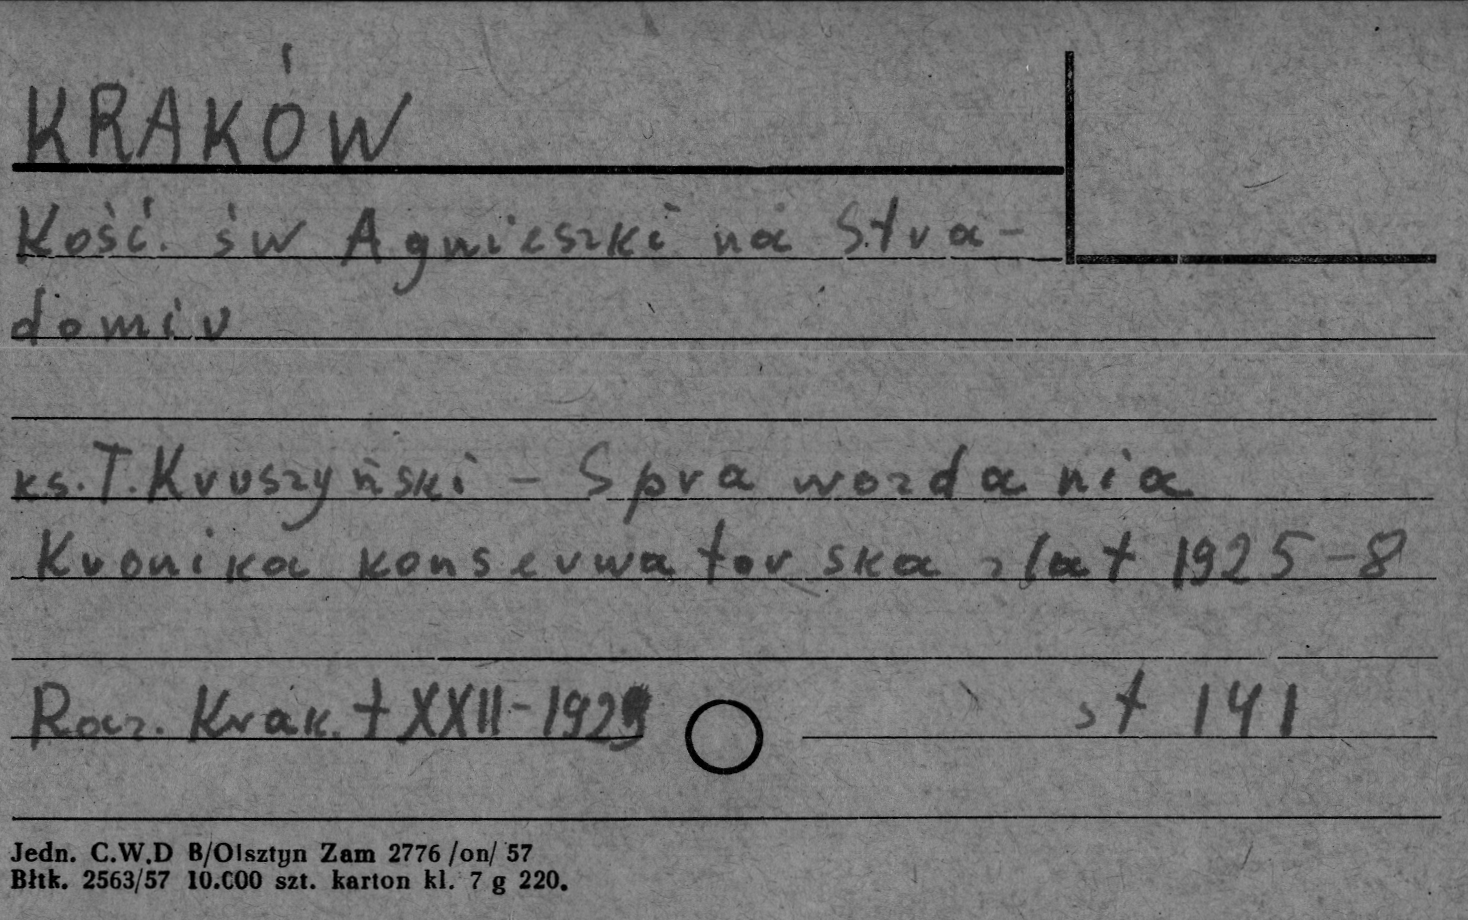 KRAKÓW
Kość. św Agnieszki na Stra-
domiu
ks. T. Kruszyński - Sprawozdania
Kronika konserwatorska z lat 1925-8
Rocz. Krak. t XXII-1929 st 141
Jedn. C.W.D B/Olsztyn Zam 2776 /on/ 57
Błtk. 2563/57 10.000 szt. karton kl. 7 g 220.